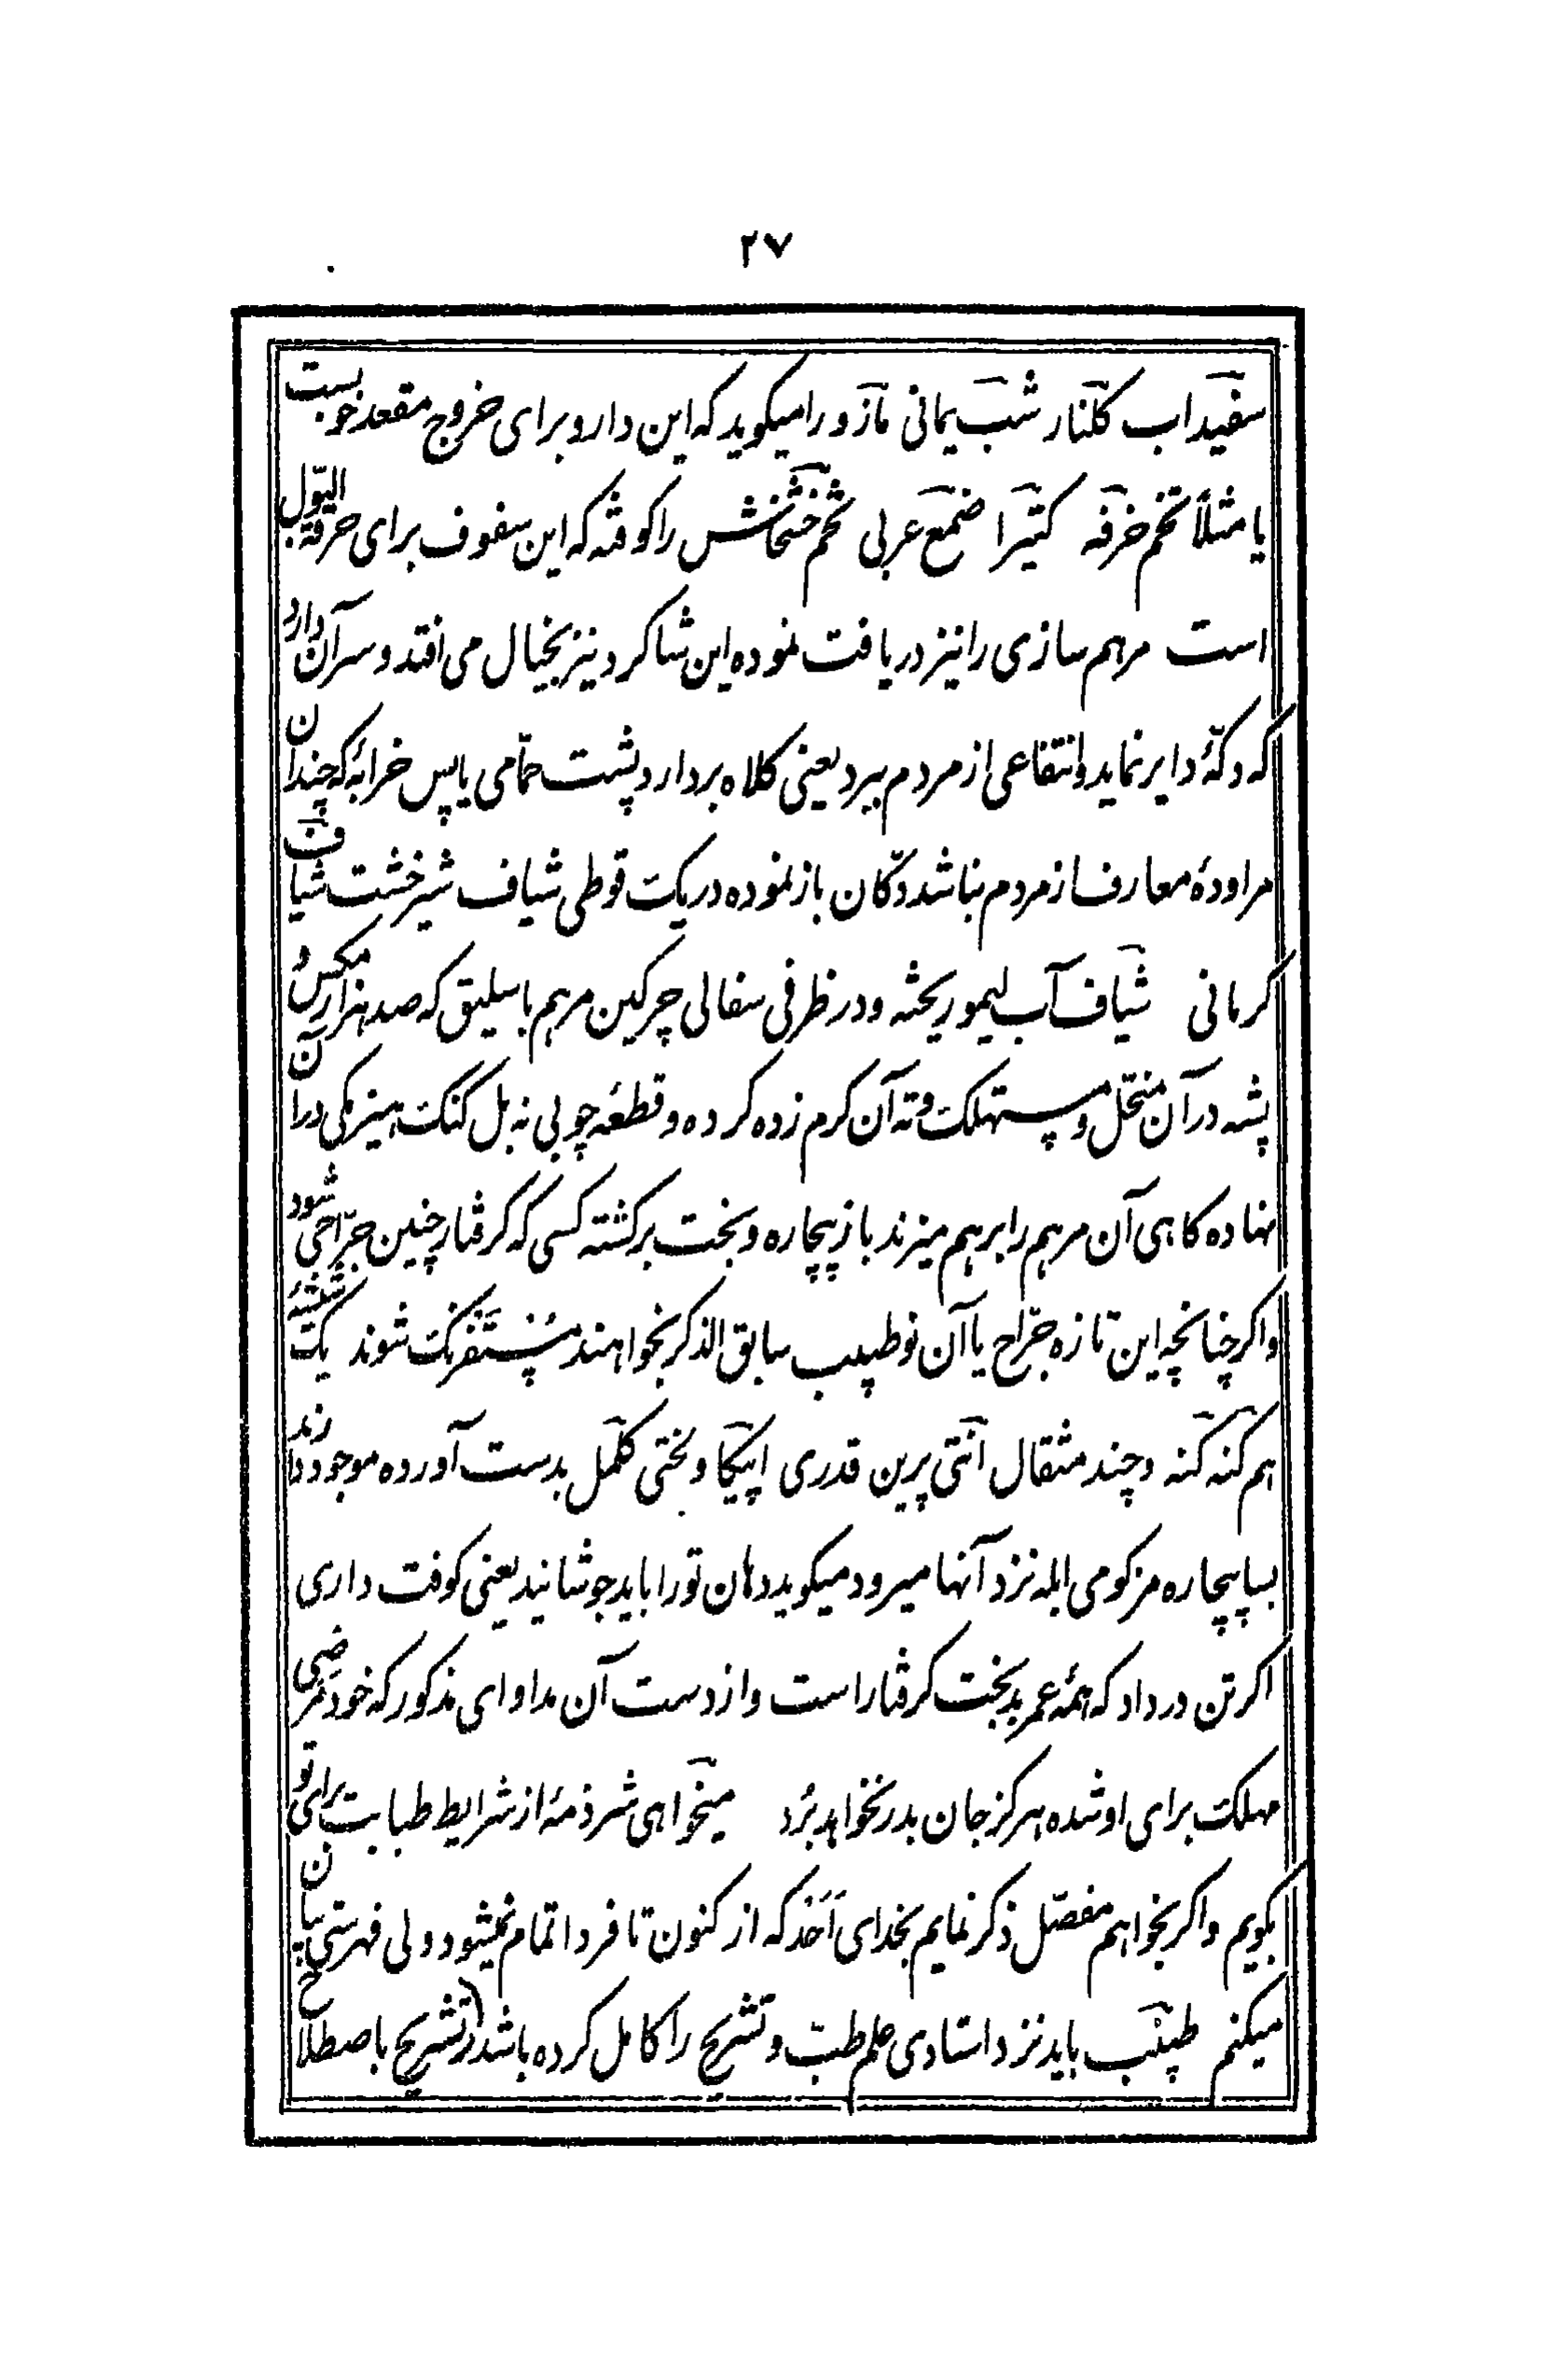 ۲۷
سفیداب کلنار شب یمانی مازو را میکوید که این دارو برای خروج مقعد خوبست
یا مثلاً تخم خرفه کتیرا ضمغ عربی تخم خشخاش را کوفته که این سفوف برای حرقة البول
است مرهم سازی را نیز دریافت نموده این شاکرد نیز بخیال می افتد و سر آن دارد
که دکّهٔ دایر نماید و انتفاعی از مردم ببرد یعنی کلاه بردارد پشت حمّامی یا پس خرابهٔ که چندان
مراودهٔ معارف از مردم نباشد دکّان باز نموده در یک قوطی شیاف شیرخشت شیاف
کرمانی شیاف آب لیمو ریخته و در ظرفی سفالی چرکین مرهم باسلیق که صد هزار مکس و
پشه در آن منحل و مستهلک و ته آن کرم زده کرده و قطعه چوبی نه بل کنک هیزمکی در آن
نهاده کاهی آن مرهم را برهم میزند باز بیچاره و بخت برکشته کسی که کرفتار چنین جرّاحی شود
و اکر چنانچه این تازه جرّاح یا آن نو طبیب سابق الذکر بخواهند مستفرنک شوند یک شیشهٔ
هم کنه کنه و چند مثقال آنتی پرین قدری اپیکا و بختی کلمل بدست آورده موجود دارند
بسا بیچاره مزکومی ابله نزد آنها میرود میکوید دهان تو را باید جوشانید یعنی کوفت داری
اکر تن در داد که همهٔ عمر بدبخت کرفتار است و از دست آن مداوای مذکور که خود مرضی
مهلک برای او شده هرکز جان بدر نخواهد برد میخواهی شرذمهٔ از شرایط طبابت برای تو
بکویم و اکر بخواهم مفصّل ذکر نمایم بخدای اَحَد که از کنون تا فردا تمام نمیشود ولی فهرستی بیان
میکنم طبیب باید نزد استادی علم طبّ و تشریح را کامل کرده باشد (تشریح باصطلاح